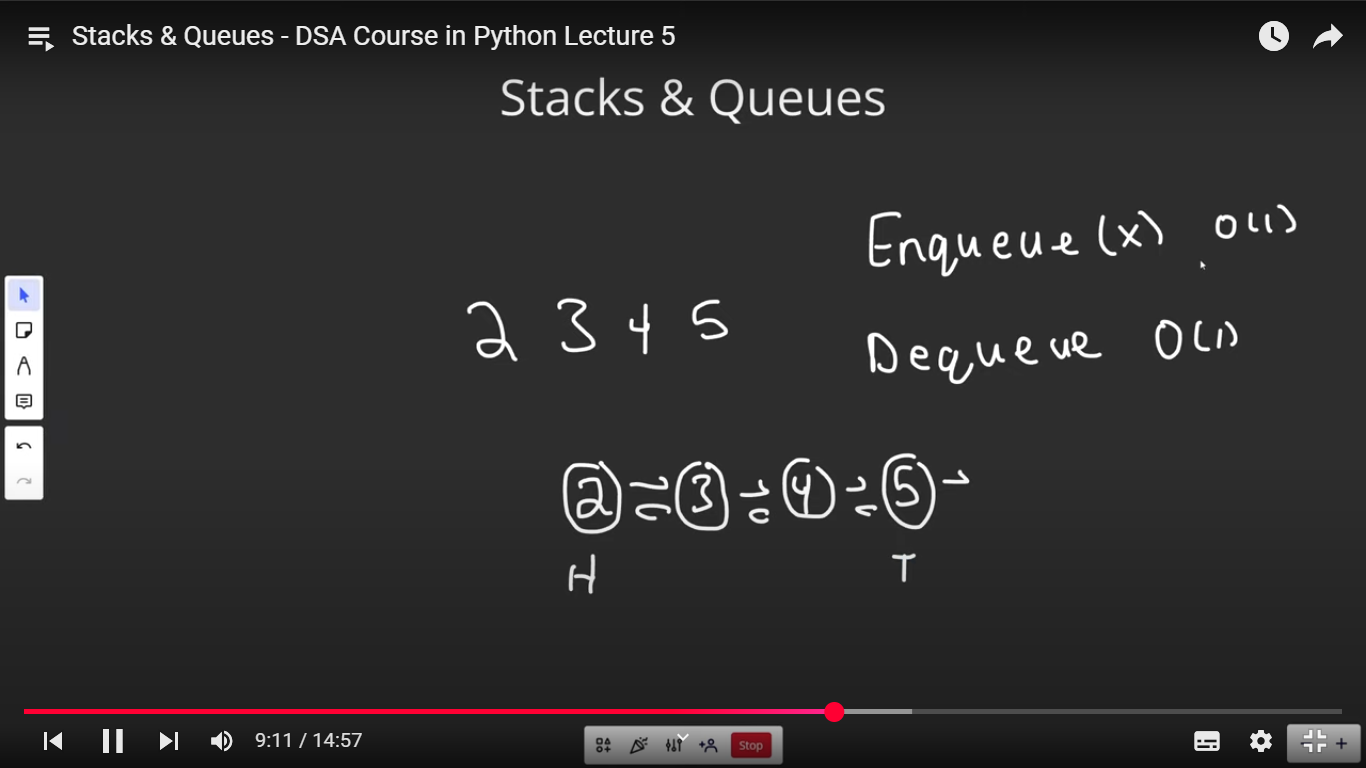 Stacks & Queues - DSA Course in Python Lecture 5
Stacks & Queues
Enqueue(x) O(1)
2 3 4 5
Dequeue O(1)
2 3 4 5
H T
9:11 / 14:57
Stop